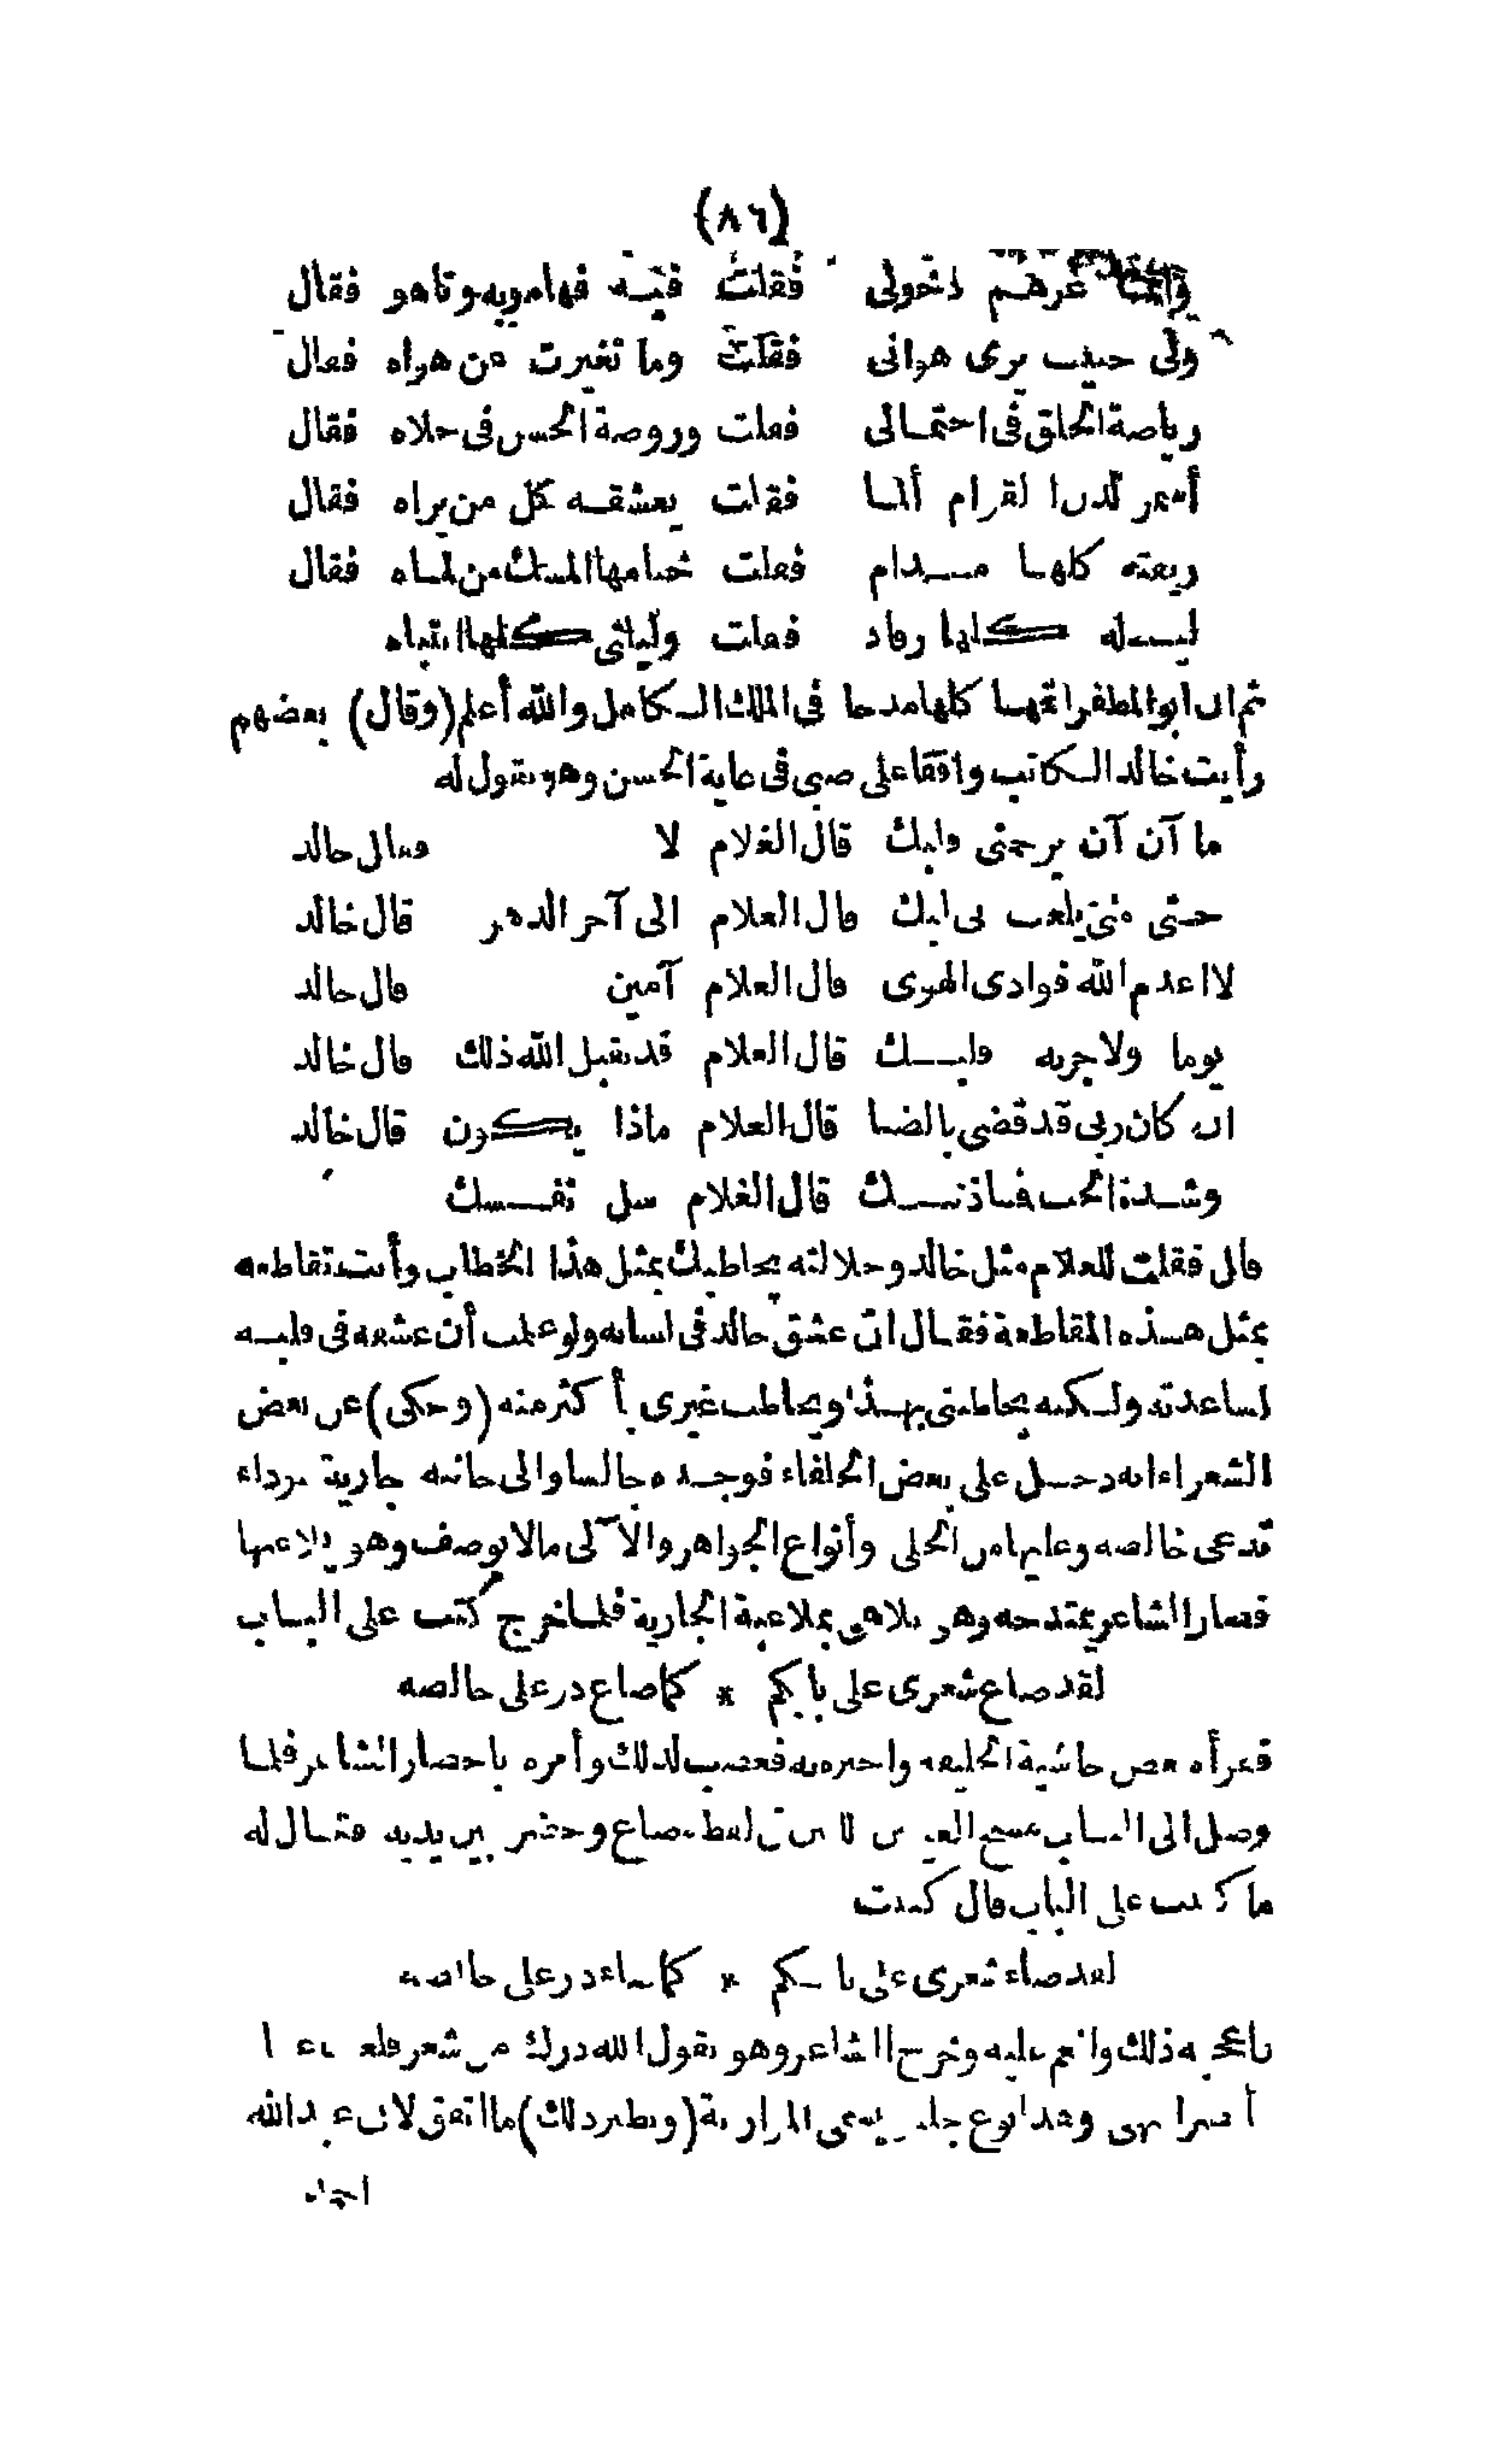 (٨٦)
وانما غرهم نحولى فقلت فيه فهامو به وتاهو فقال
ولى حبيب يرى هوانى فقلت وما تغيرت عن هواه فقال
رياضة الخلق فى احتمالى فقلت وروضة الحسن فى حلاه فقال
أسمر لدن القوام ألمى فقلت يعشقه كل من يراه فقال
ريقته كلها مدام فقلت ختامها المسك من لماه فقال
ليله كلها رقاد فقلت وليلتى كلها انتباه
ثم ان ابو المظفر اتمها كلها مدحا فى الملك الكامل والله أعلم (وقال) بعضهم
رأيت خالد الكاتب واقفا على صبى فى غاية الحسن وهو يقول له
ما آن آن يرحمنى قلبك قال الغلام لا وقال خالد
حتى متى يلعب بى لبك قال الغلام الى آخر الدهر قال خالد
لا اعدم الله فوادى الهوى قال الغلام آمين قال خالد
يوما ولا جربه قلبك قال الغلام قد تقبل الله ذلك قال خالد
ان كان ربى قد قضى بالضنا قال الغلام ماذا يكون قال خالد
وشدة الحب فما ذنبك قال الغلام سل نفسك
قال فقلت للغلام مثل خالد وجلالته يخاطبك بمثل هذا الخطاب وأنت تقاطعه
بمثل هذه المقاطعة فقال ان عشق خالد فى لسانه ولو علمت أن عشقه فى قلبه
لساعدته ولكنه يخاطبنى بهذا ويخاطب غيرى بأكثر منه (وحكى) عن بعض
الشعراء انه دخل على بعض الخلفاء فوجده جالسا والى جانبه جارية سوداء
تدعى خالصه وعليها من الحلى وأنواع الجواهر والآلى مالا يوصف وهو يلاعبها
فصار الشاعر يمتدحه وهو يلاهى بملاعبة الجارية فلما خرج كتب على الباب
لقد ضاع شعرى على بابكم * كما ضاع در على خالصه
فقرأه بعض حاشية الخليفه واخبره به فغضب لذلك وأمره باحضار الشاعر فلما
وصل الى الباب مسح العين من لفظ ضاع وحضر بين يديه فقال له
ما كتبت على الباب قال كتبت
لقد ضاء شعرى على بابكم * كما ضاء در على خالصه
فاعجبه ذلك وانعم عليه وخرج الشاعر وهو يقول لله درك من شعر قلعت
وهذا نوع يسمى المواربة (ونظير ذلك) ما اتفق لابى عبد الله